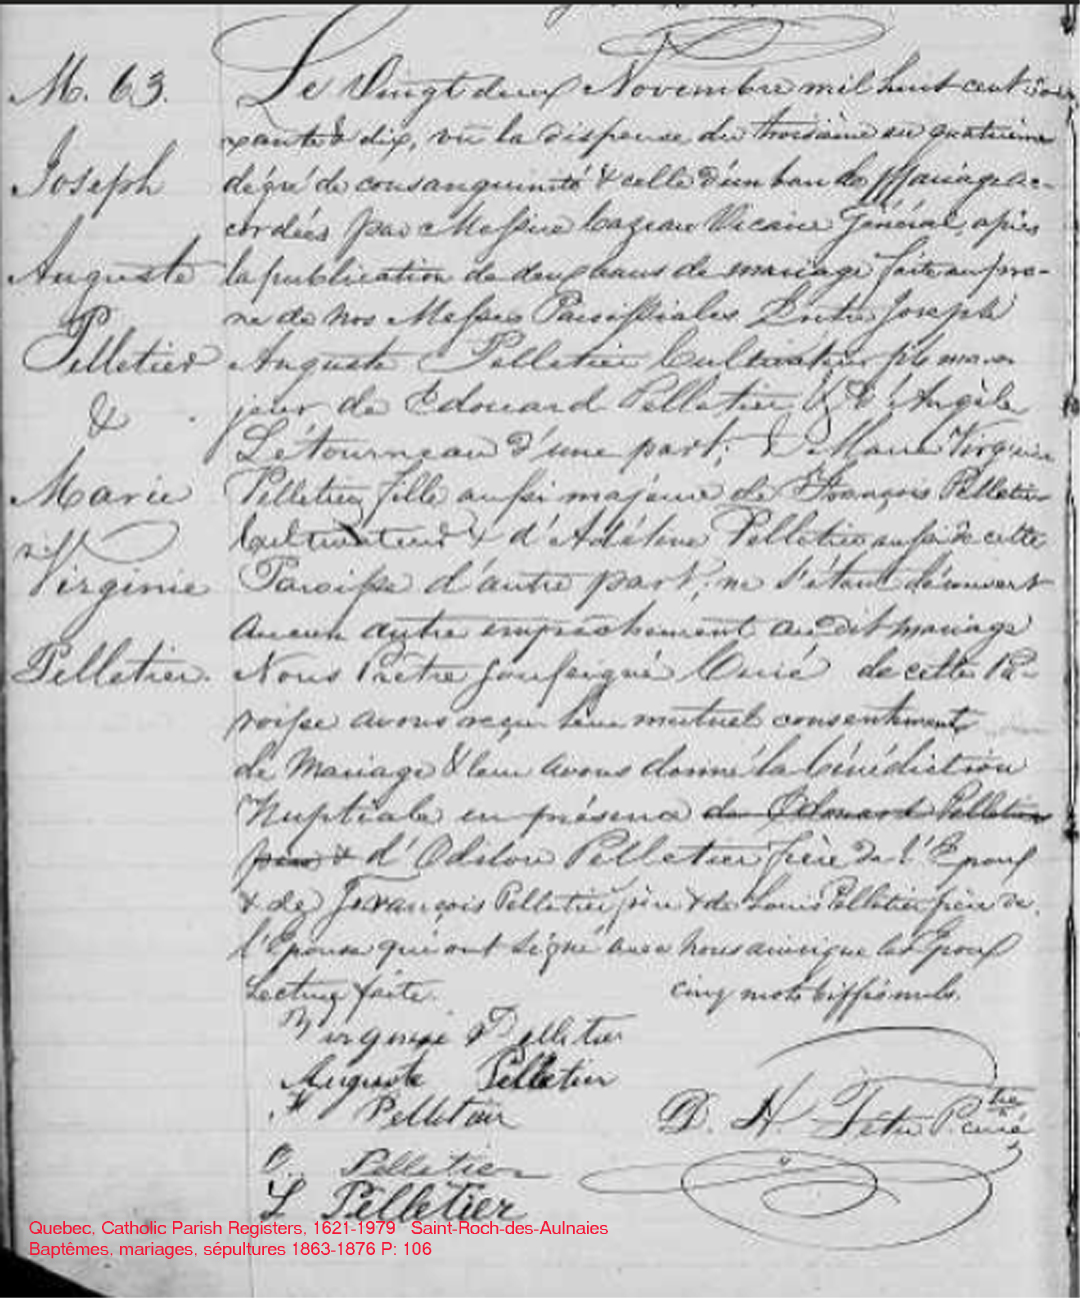 M. 63.
Joseph
Auguste
Pelletier
&
Marie
Virginie
Pelletier.
Le Vingt deux Novembre mil huit cent soi-
xante & dix, vu la dispense du troisième au quatrième
dégré de consanguinité & celle d'un ban de Mariage ac-
cordées par Messire Cazeau Vicaire Général, après
la publication de deux bans de mariage faite au prô-
ne de nos Messes Paroissiales Entre Joseph
Auguste Pelletier Cultivateur fils ma-
jeur de Edouard Pelletier & d'Angèle
Létourneau d'une part; & Marie Virginie
Pelletier fille aussi majeure de François Pelletier
Cultivateur & d'Adéline Pelletier aussi de cette
Paroisse d'autre part; ne s'étant découvert
Aucun autre empêchement au dit mariage
Nous Prêtre soussigné Curé de cette Pa-
roisse avons reçu leur mutuel consentement
de Mariage & leur avons donné la bénédiction
Nuptiale en présence de Edouard Pelletier
père & d'Odilon Pelletier frère de l'Epoux
& de François Pelletier père & de Louis Pelletier frère de
l'Epouse qui ont signé avec nous ainsi que les Epoux
Lecture faite. cinq mots biffés nuls.
Virginie Pelletier
Auguste Pelletier
F Pelletier
O. Pelletier
L Pelletier
D. H Tetu Ptre Curé
Quebec, Catholic Parish Registers, 1621-1979 Saint-Roch-des-Aulnaies
Baptêmes, mariages, sépultures 1863-1876 P: 106